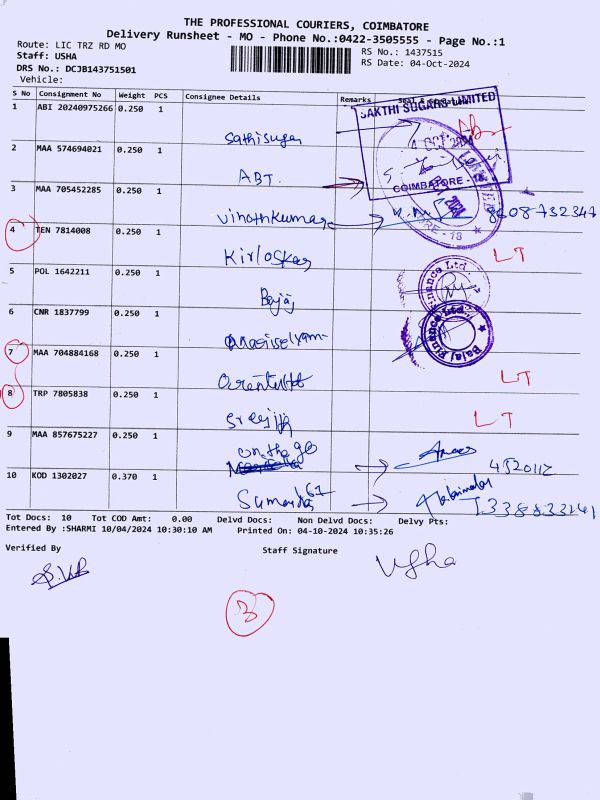 THE PROFESSIONAL COURIERS, COIMBATORE
Delivery Runsheet - MO - Phone No.:0422-3505555 - Page No.:1
Route: LIC TRZ RD MO
RS No.: 1437515
Staff: USHA
RS Date: 04-Oct-2024
DRS No.: DCJB143751501
Vehicle:
S No Consignment No Weight PCS Consignee Details Remarks Seal & Signature
1 ABI 20240975266 0.250 1
SAKTHI SUGARS LIMITED
COIMBATORE - 18
Sathisugar
2 MAA 574694021 0.250 1
ABT.
3 MAA 705452285 0.250 1
Vinothkumar
4 TEN 7814008 0.250 1
Kirloskar LT
5 POL 1642211 0.250 1
Bajaj
6 CNR 1837799 0.250 1
Bajaj Finance Ltd
7 MAA 704884168 0.250 1
LT
8 TRP 7805838 0.250 1
LT
9 MAA 857675227 0.250 1
on the go
10 KOD 1302027 0.370 1
Tot Docs: 10 Tot COD Amt: 0.00 Delvd Docs: Non Delvd Docs: Delvy Pts:
Entered By :SHARMI 10/04/2024 10:30:10 AM Printed On: 04-10-2024 10:35:26
Verified By Staff Signature
Usha
3